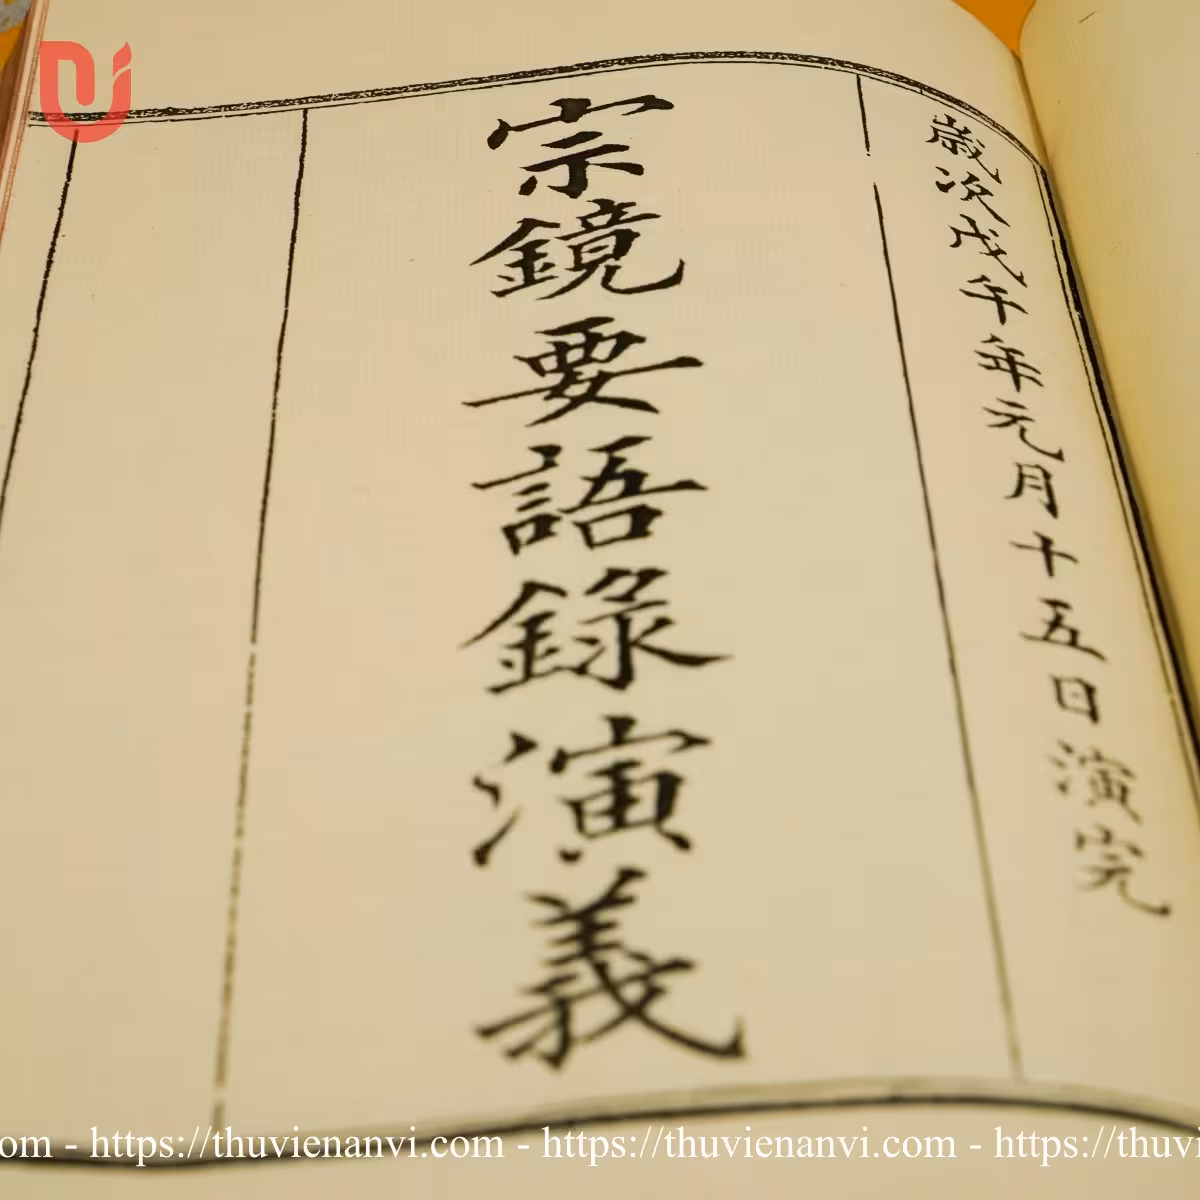 歲次戊午年元月十五日演完
宗鏡要語錄演義
om - https://thuvienanvi.com - https://thuvienanvi.com - https://thuvi